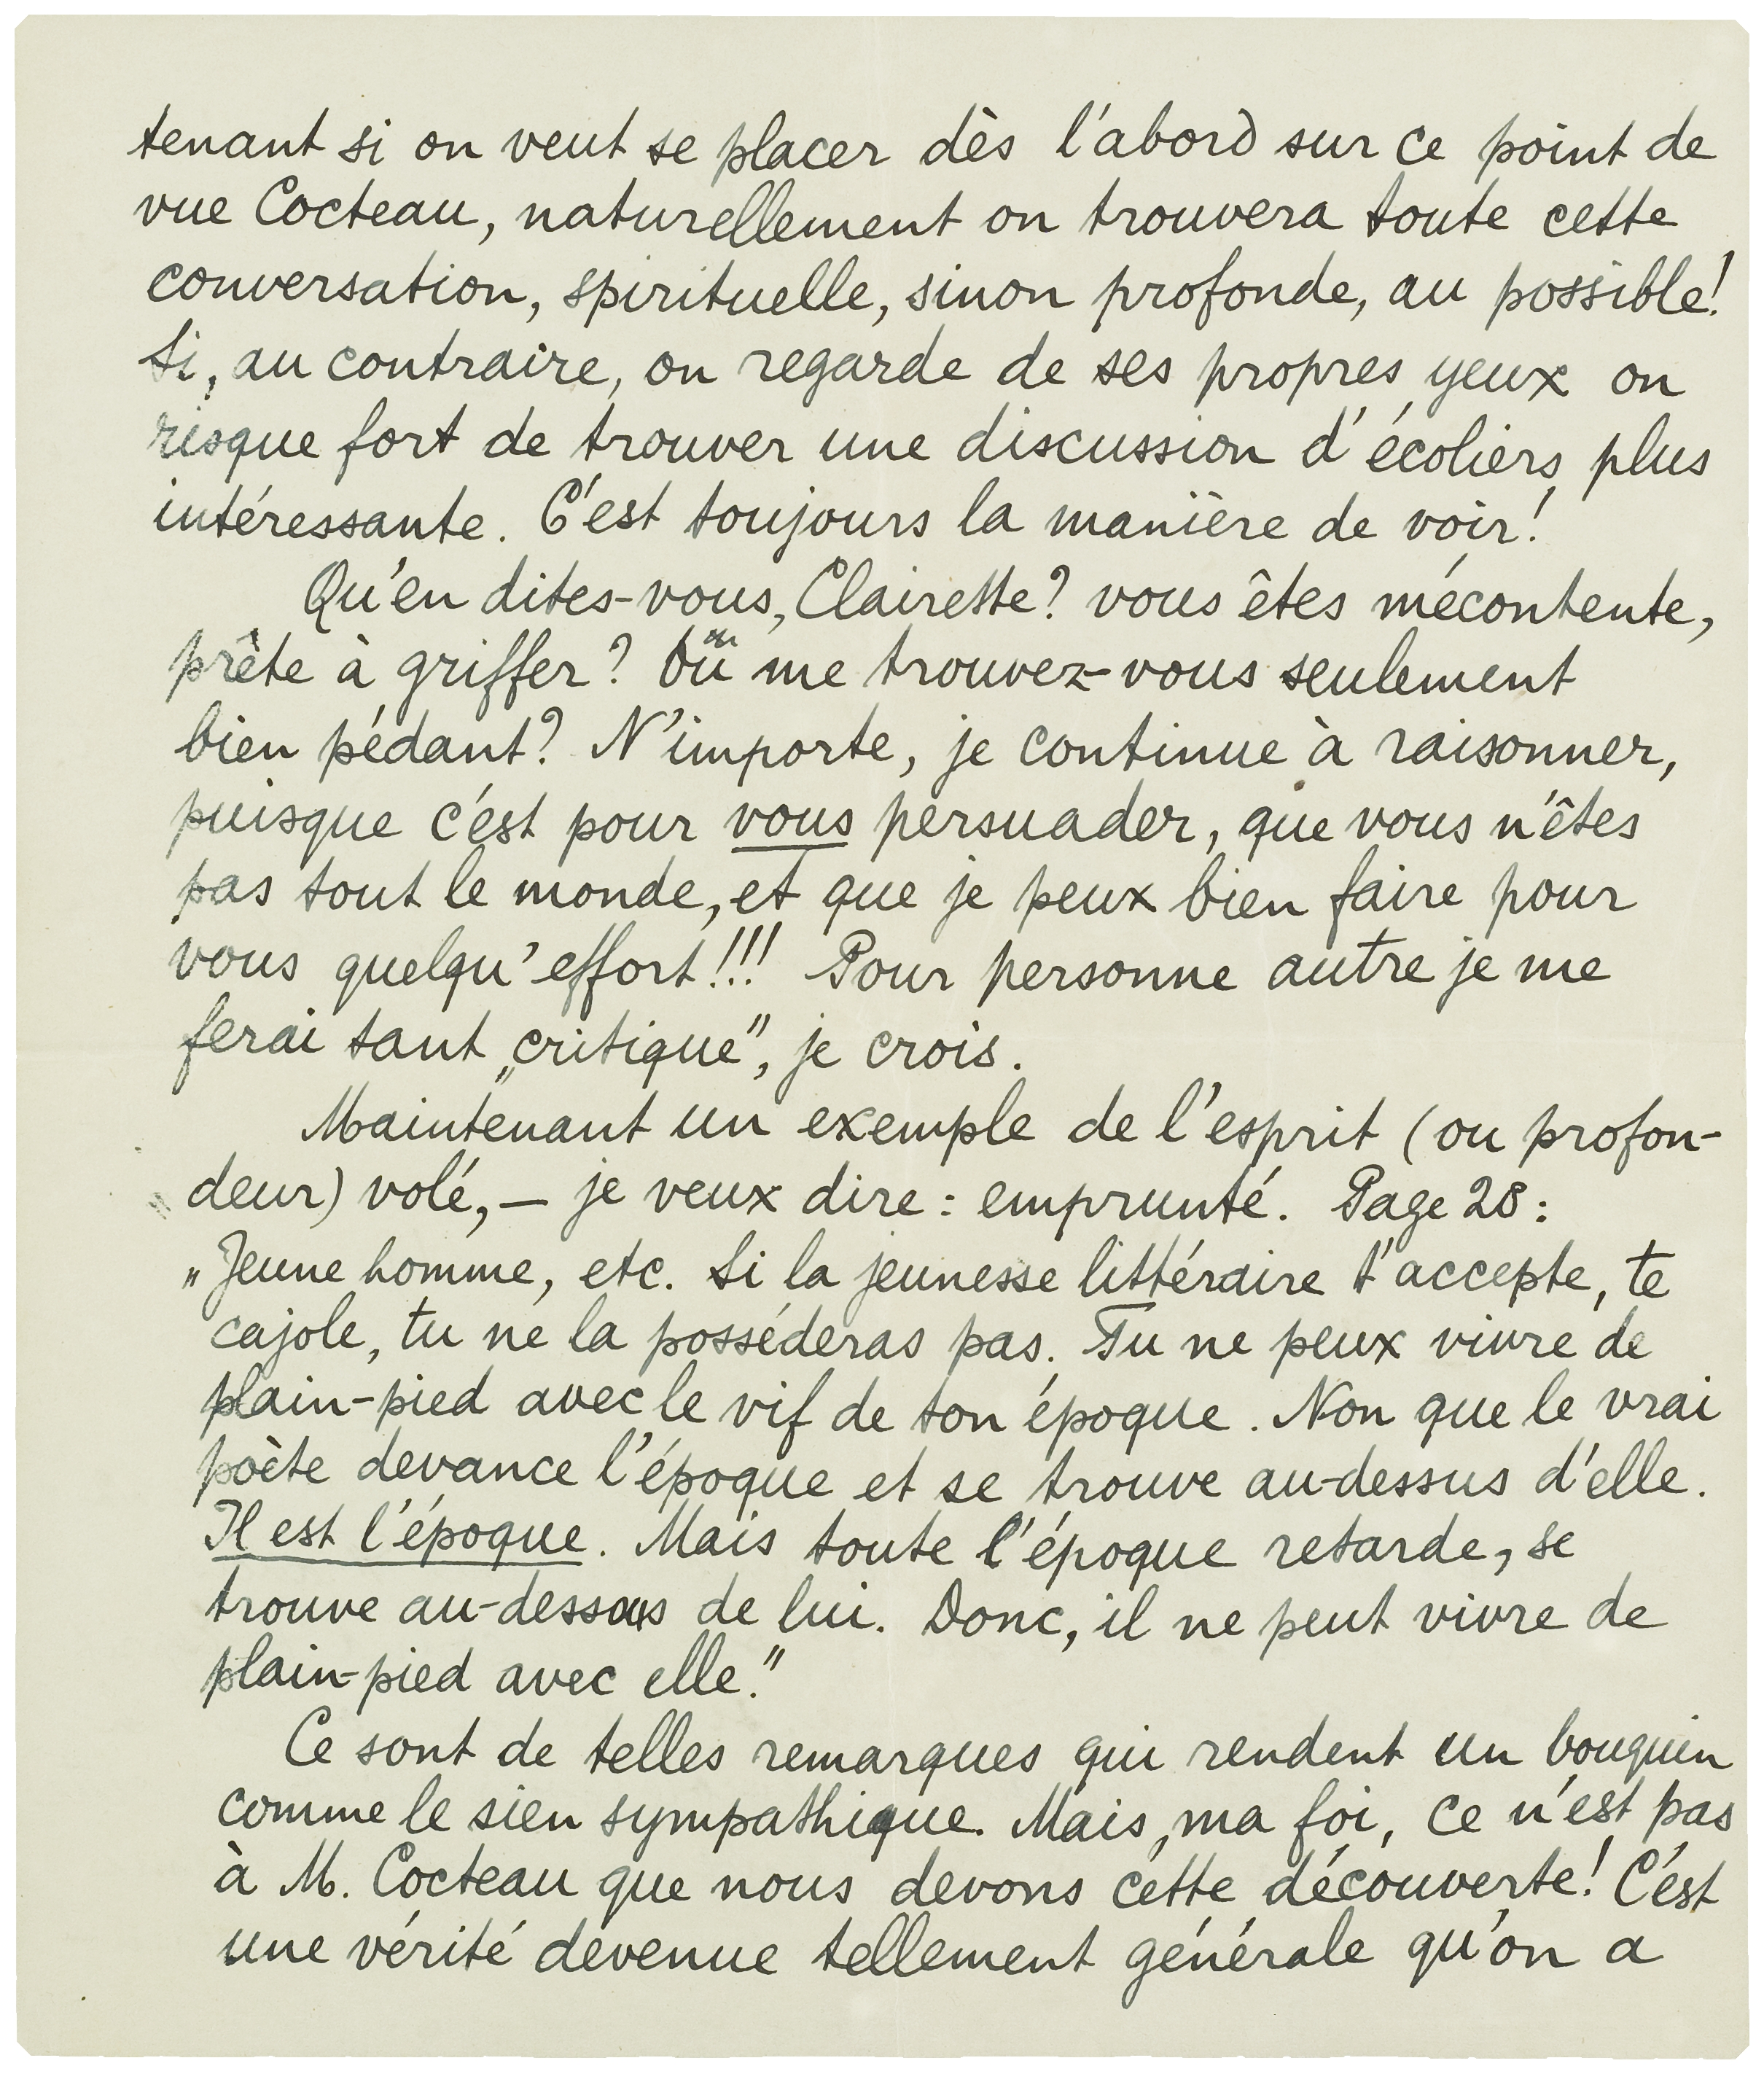 tenant si on veut se placer dès l'abord sur ce point de
vue Cocteau, naturellement on trouvera toute cette
conversation, spirituelle, sinon profonde, au possible!
Si, au contraire, on regarde de ses propres yeux on
risque fort de trouver une discussion d'écoliers plus
intéressante. C'est toujours la manière de voir!
Qu'en dites-vous, Clairette? vous êtes mécontente,
prête à griffer? Ou me trouvez-vous seulement
bien pédant? N'importe, je continue à raisonner,
puisque c'est pour vous persuader, que vous n'êtes
pas tout le monde, et que je peux bien faire pour
vous quelqu'effort!!! Pour personne autre je me
ferai tant „critique", je crois.
Maintenant un exemple de l'esprit (ou profon-
deur) volé, — je veux dire: emprunté. Page 28:
„Jeune homme, etc. Si la jeunesse littéraire t'accepte, te
cajole, tu ne la posséderas pas. Tu ne peux vivre de
plain-pied avec le vif de ton époque. Non que le vrai
poète devance l'époque et se trouve au-dessus d'elle.
Il est l'époque. Mais toute l'époque retarde, se
trouve au-dessous de lui. Donc, il ne peut vivre de
plain-pied avec elle."
Ce sont de telles remarques qui rendent un bouquin
comme le sien sympathique. Mais, ma foi, ce n'est pas
à M. Cocteau que nous devons cette découverte! C'est
une vérité devenue tellement générale qu'on a